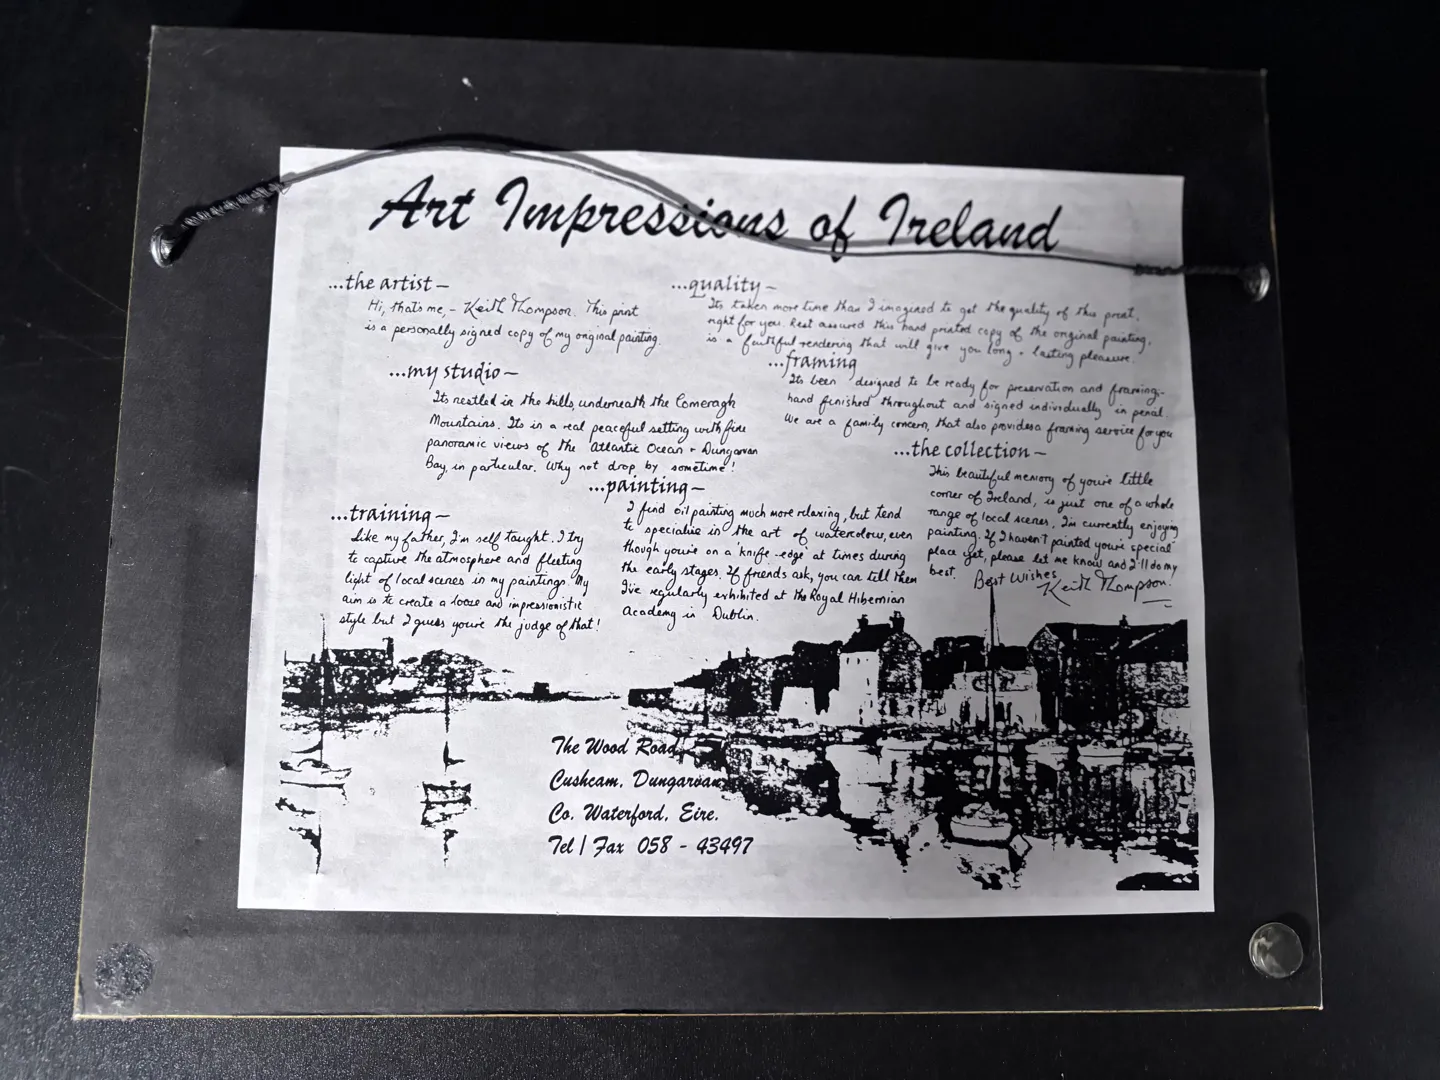 Art Impressions of Ireland
...the artist –
Hi, that's me, – Keith Thompson. This print
is a personally signed copy of my original painting.
...quality –
Its taken more time than I imagined to get the quality of this print,
right for you. Rest assured this hand printed copy of the original painting,
is a faithful rendering that will give you long - lasting pleasure.
...my studio –
Its nestled in the hills, underneath the Comeragh
Mountains. Its in a real peaceful setting with fine
panoramic views of the Atlantic Ocean + Dungarvan
Bay, in particular. Why not drop by sometime!
...framing
Its been designed to be ready for preservation and framing:-
hand finished throughout and signed individually in penal.
We are a family concern, that also provides a framing service for you
...training –
Like my father, I'm self taught. I try
to capture the atmosphere and fleeting
light of local scenes in my paintings. My
aim is to create a loose and impressionistic
style but I guess you're the judge of that!
...painting –
I find oil painting much more relaxing, but tend
to specialise in the art of watercolour, even
though you're on a 'knife-edge' at times during
the early stages. If friends ask, you can tell them
I've regularly exhibited at the Royal Hibernian
Academy in Dublin.
...the collection –
This beautiful memory of you're little
corner of Ireland, is just one of a whole
range of local scenes, I'm currently enjoying
painting. If I haven't painted you're 'special'
place yet, please let me know and I'll do my
best. Best Wishes,
Keith Thompson.
The Wood Road,
Cushcam, Dungarvan
Co. Waterford, Eire.
Tel / Fax 058 - 43497